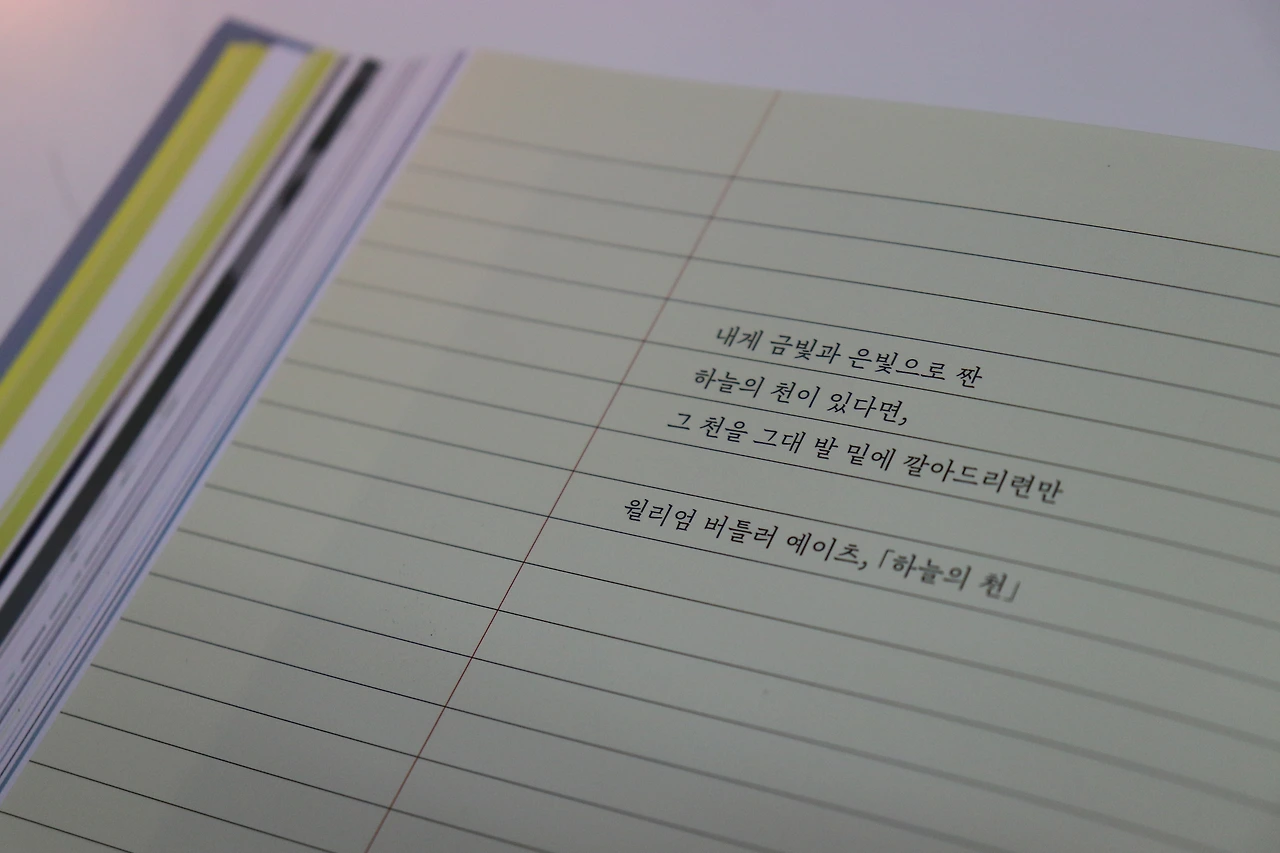 내게 금빛과 은빛으로 짠
하늘의 천이 있다면,
그 천을 그대 발 밑에 깔아드리련만
윌리엄 버틀러 예이츠, 「하늘의 천」